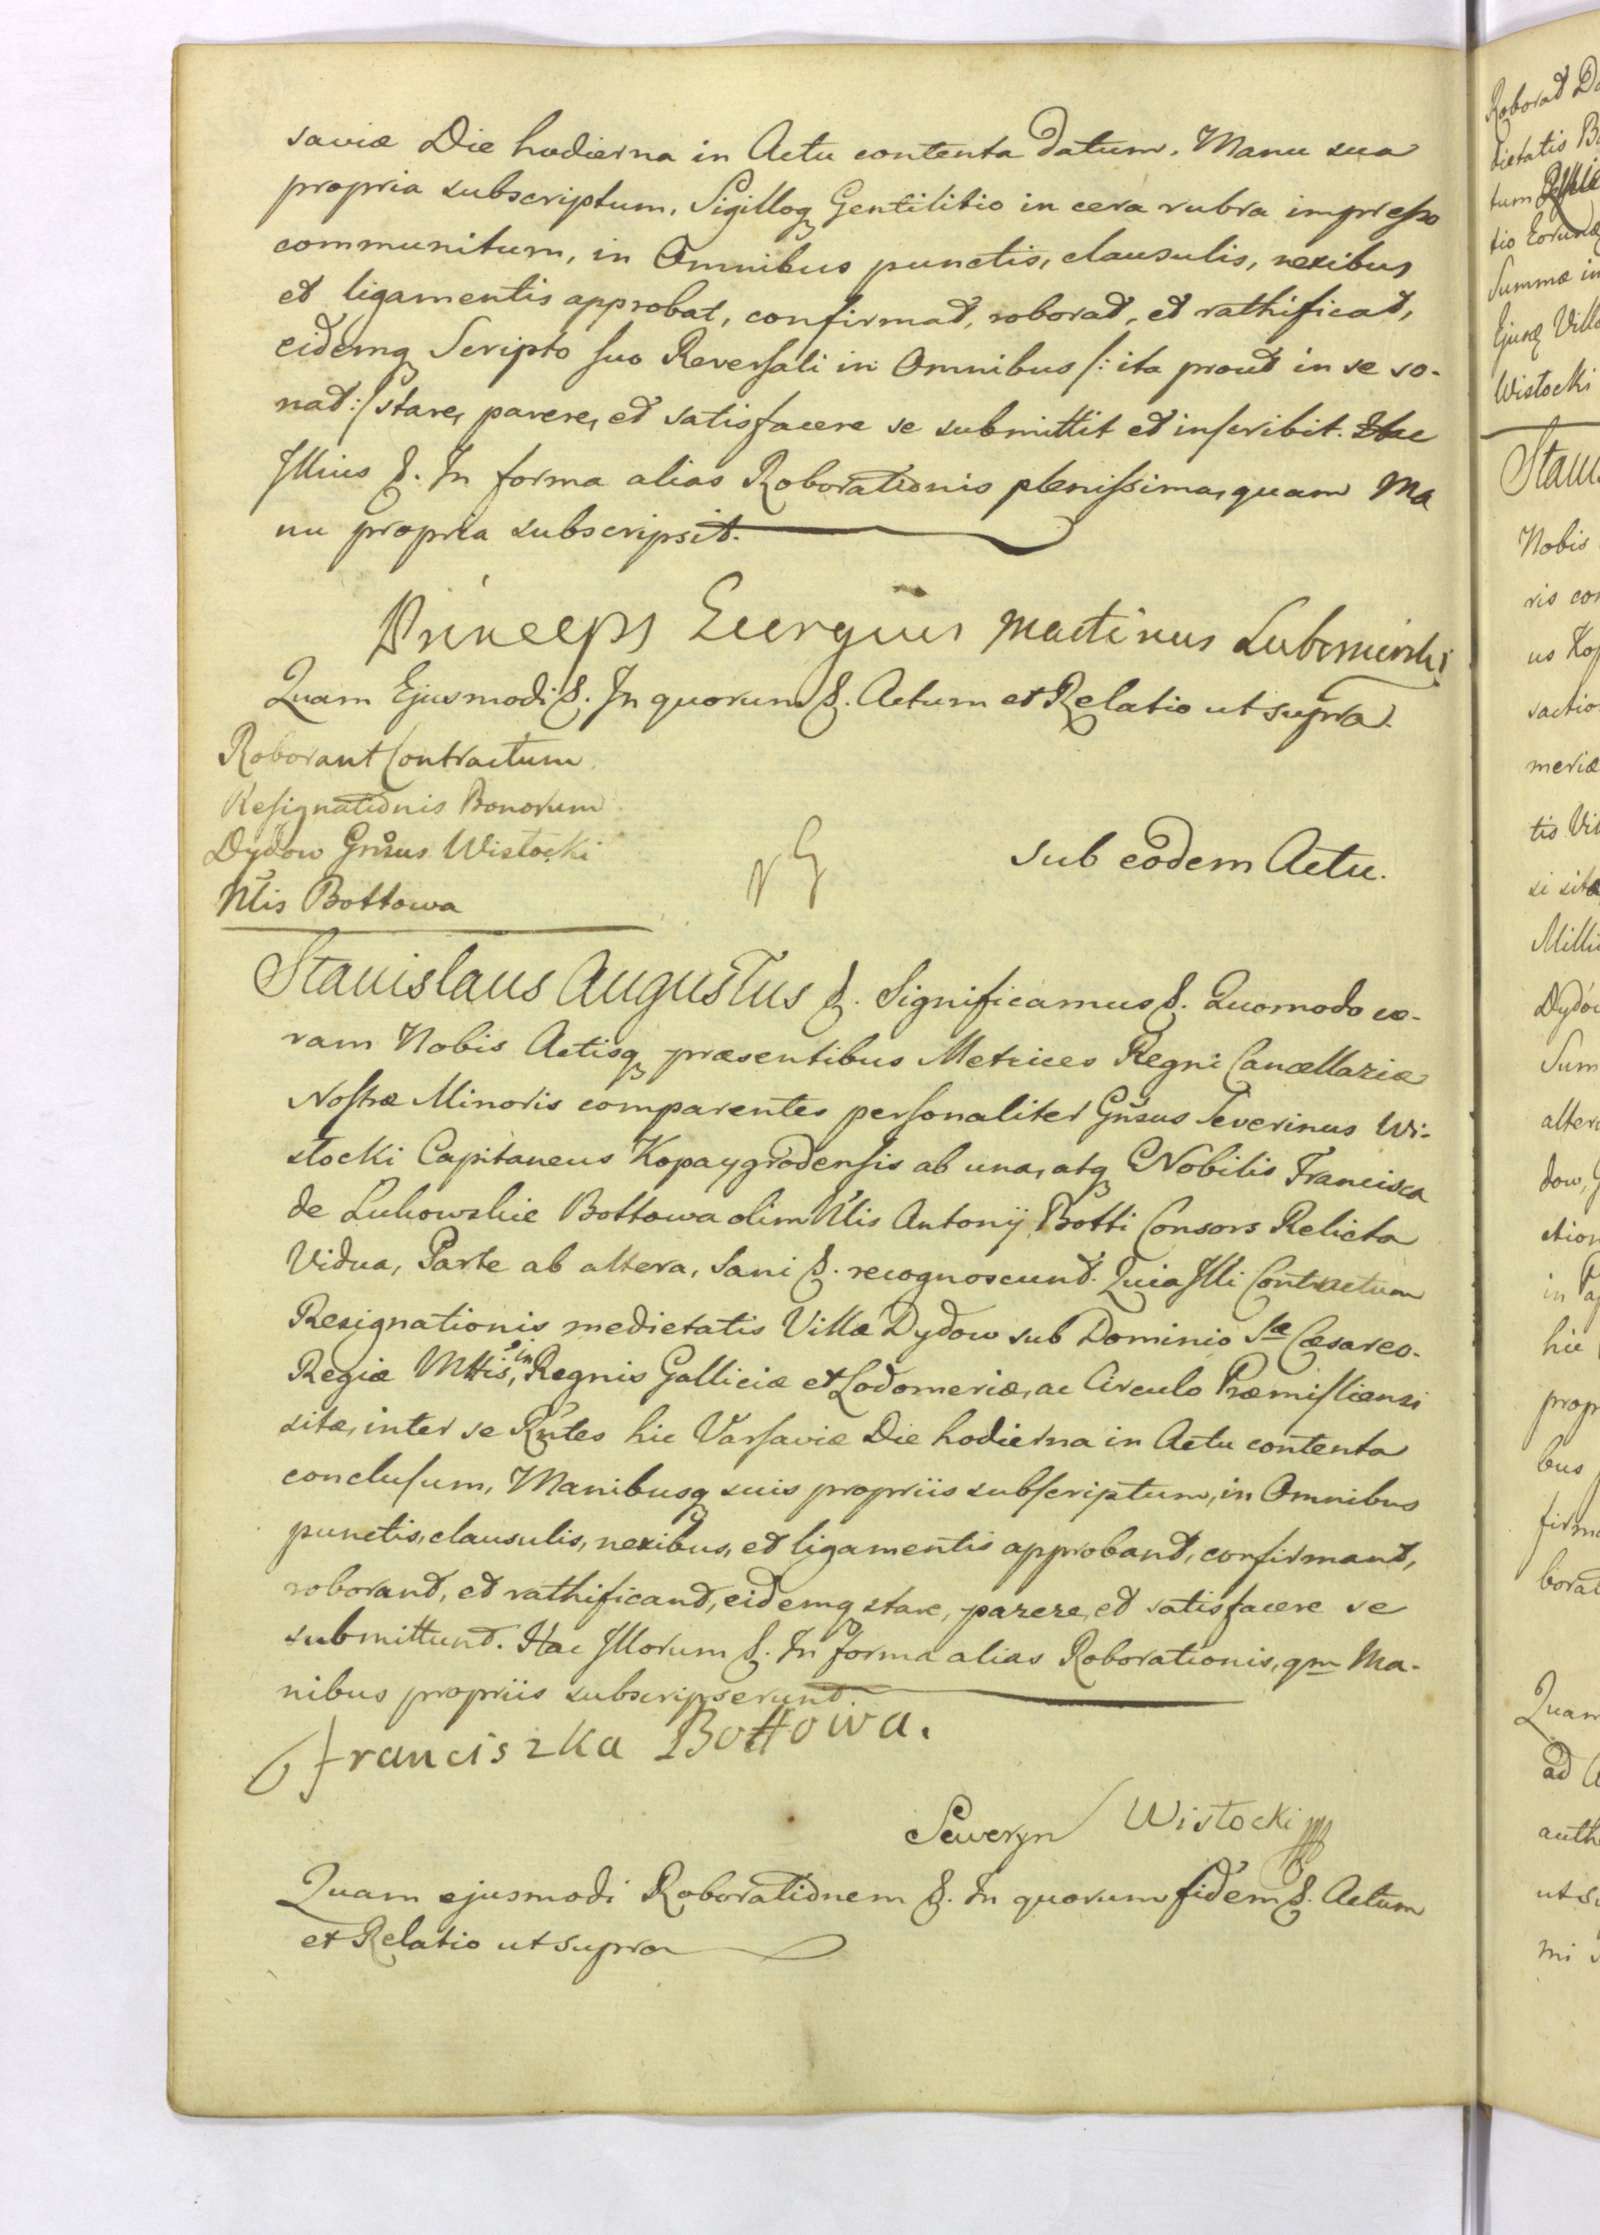 saviæ Die hodierna in Actu contenta datum. Manu sua
propria subscriptum, Sigilloq Gentilitio in cera rubra impresso
communitum, in Omnibus punctis, clausulis, nexibus
et ligamentis approbat, confirmat, roborat, et rathificat,
eidemq Scripto suo Reversali in Omnibus /: ita prout in se so-
nat :/ stare, parere, et satisfacere se submittit et inscribit. Hac
Illius &. In forma alias Roborationis plenissima, quam Ma
nu propria subscripsit.
Princeps Martinus Lubomirski
Quam Ejusmodi &. In quorum &. Actum et Relatio ut supra.
Roborant Contractum
Resignationis Bonorum
Dydow Gnsus Wisłocki
Nlis Bottowa
Sub eodem Actu.
Stanislaus Augustus &. Significamus &. Quomodo co-
ram Nobis Actisq præsentibus Metrices Regni Cancellariæ
Nostræ Minoris comparentes personaliter Gnsus Severinus Wi-
słocki Capitaneus Kopaygrodensis ab una, atq Nobilis Francisca
de Lukowskie Bottowa olim Nlis Antonij Botti Consors Relicta
Vidua, Parte ab altera, Sani &. recognoscunt. Quia Illi Contractum
Resignationis medietatis Villæ Dydow sub Dominio Sæ Cæsareo-
Regiæ Mttis, in Regnis Galliciæ et Lodomeriæ, ac Circulo Præmisliensi
sitæ, inter se Rntes hic Varsaviæ Die hodierna in Actu contenta
conclusum, Manibusq suis propriis subscriptum, in Omnibus
punctis, clausulis, nexibus, et ligamentis approbant, confirmant,
roborant, et rathificant, eidemq stare, parere, et satisfacere se
submittunt. Hac Illorum &. In forma alias Roborationis, qm Ma-
nibus propriis subscripserunt.
Franciszka Bottowa.
Seweryn Wisłocki
Quam ejusmodi Roborationem &. In quorum fidem &. Actum
et Relatio ut supra